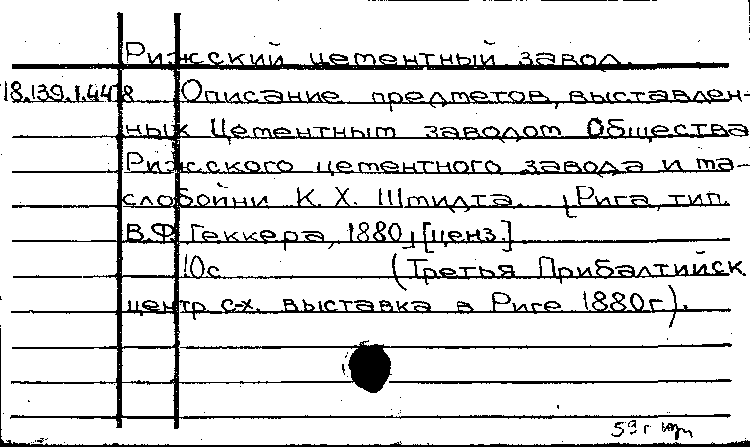 Рижский цементный завод.
18.139.1.448 Описание предметов, выставлен-
ных Цементным заводом Общества
Рижского цементного завода и ма-
слобойни К. Х. Шмидта. [Рига, тип.
В.Ф. Геккера, 1880] [ценз.]
10с (Третья Прибалтийск
центр с-х. выставка в Риге 1880г).
59г